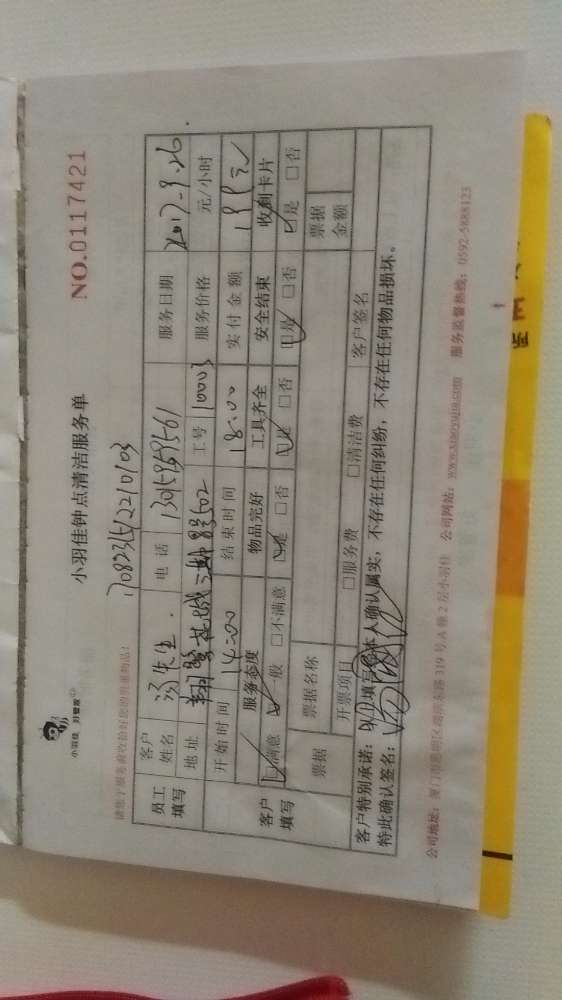 小羽佳 好管家
小羽佳钟点清洁服务单
NO.0117421
请您于服务前收拾好您的贵重物品!
员工填写 客户姓名 汤先生 电话 13015959561 服务日期 2017.9.26
地址 工号 10003 服务价格 元/小时
开始时间 14:00 结束时间 18:00 实付金额 199元
客户填写 服务态度 物品完好 工具齐全 安全结束 收到卡片
☑满意 ☑一般 □不满意 ☑是 □否 ☑是 □否 ☑是 □否 ☑是 □否
票据 票据名称 票据金额
开票项目 □服务费 □清洁费 客户签名
客户特别承诺: 以上填写经本人确认属实,不存在任何纠纷,不存在任何物品损坏。
特此确认签名:
公司地址: 厦门市思明区湖滨东路 319 号 A 幢 2 层小羽佳 公司网站: www.xiaoyujia.com 服务监督热线: 0592-5888123